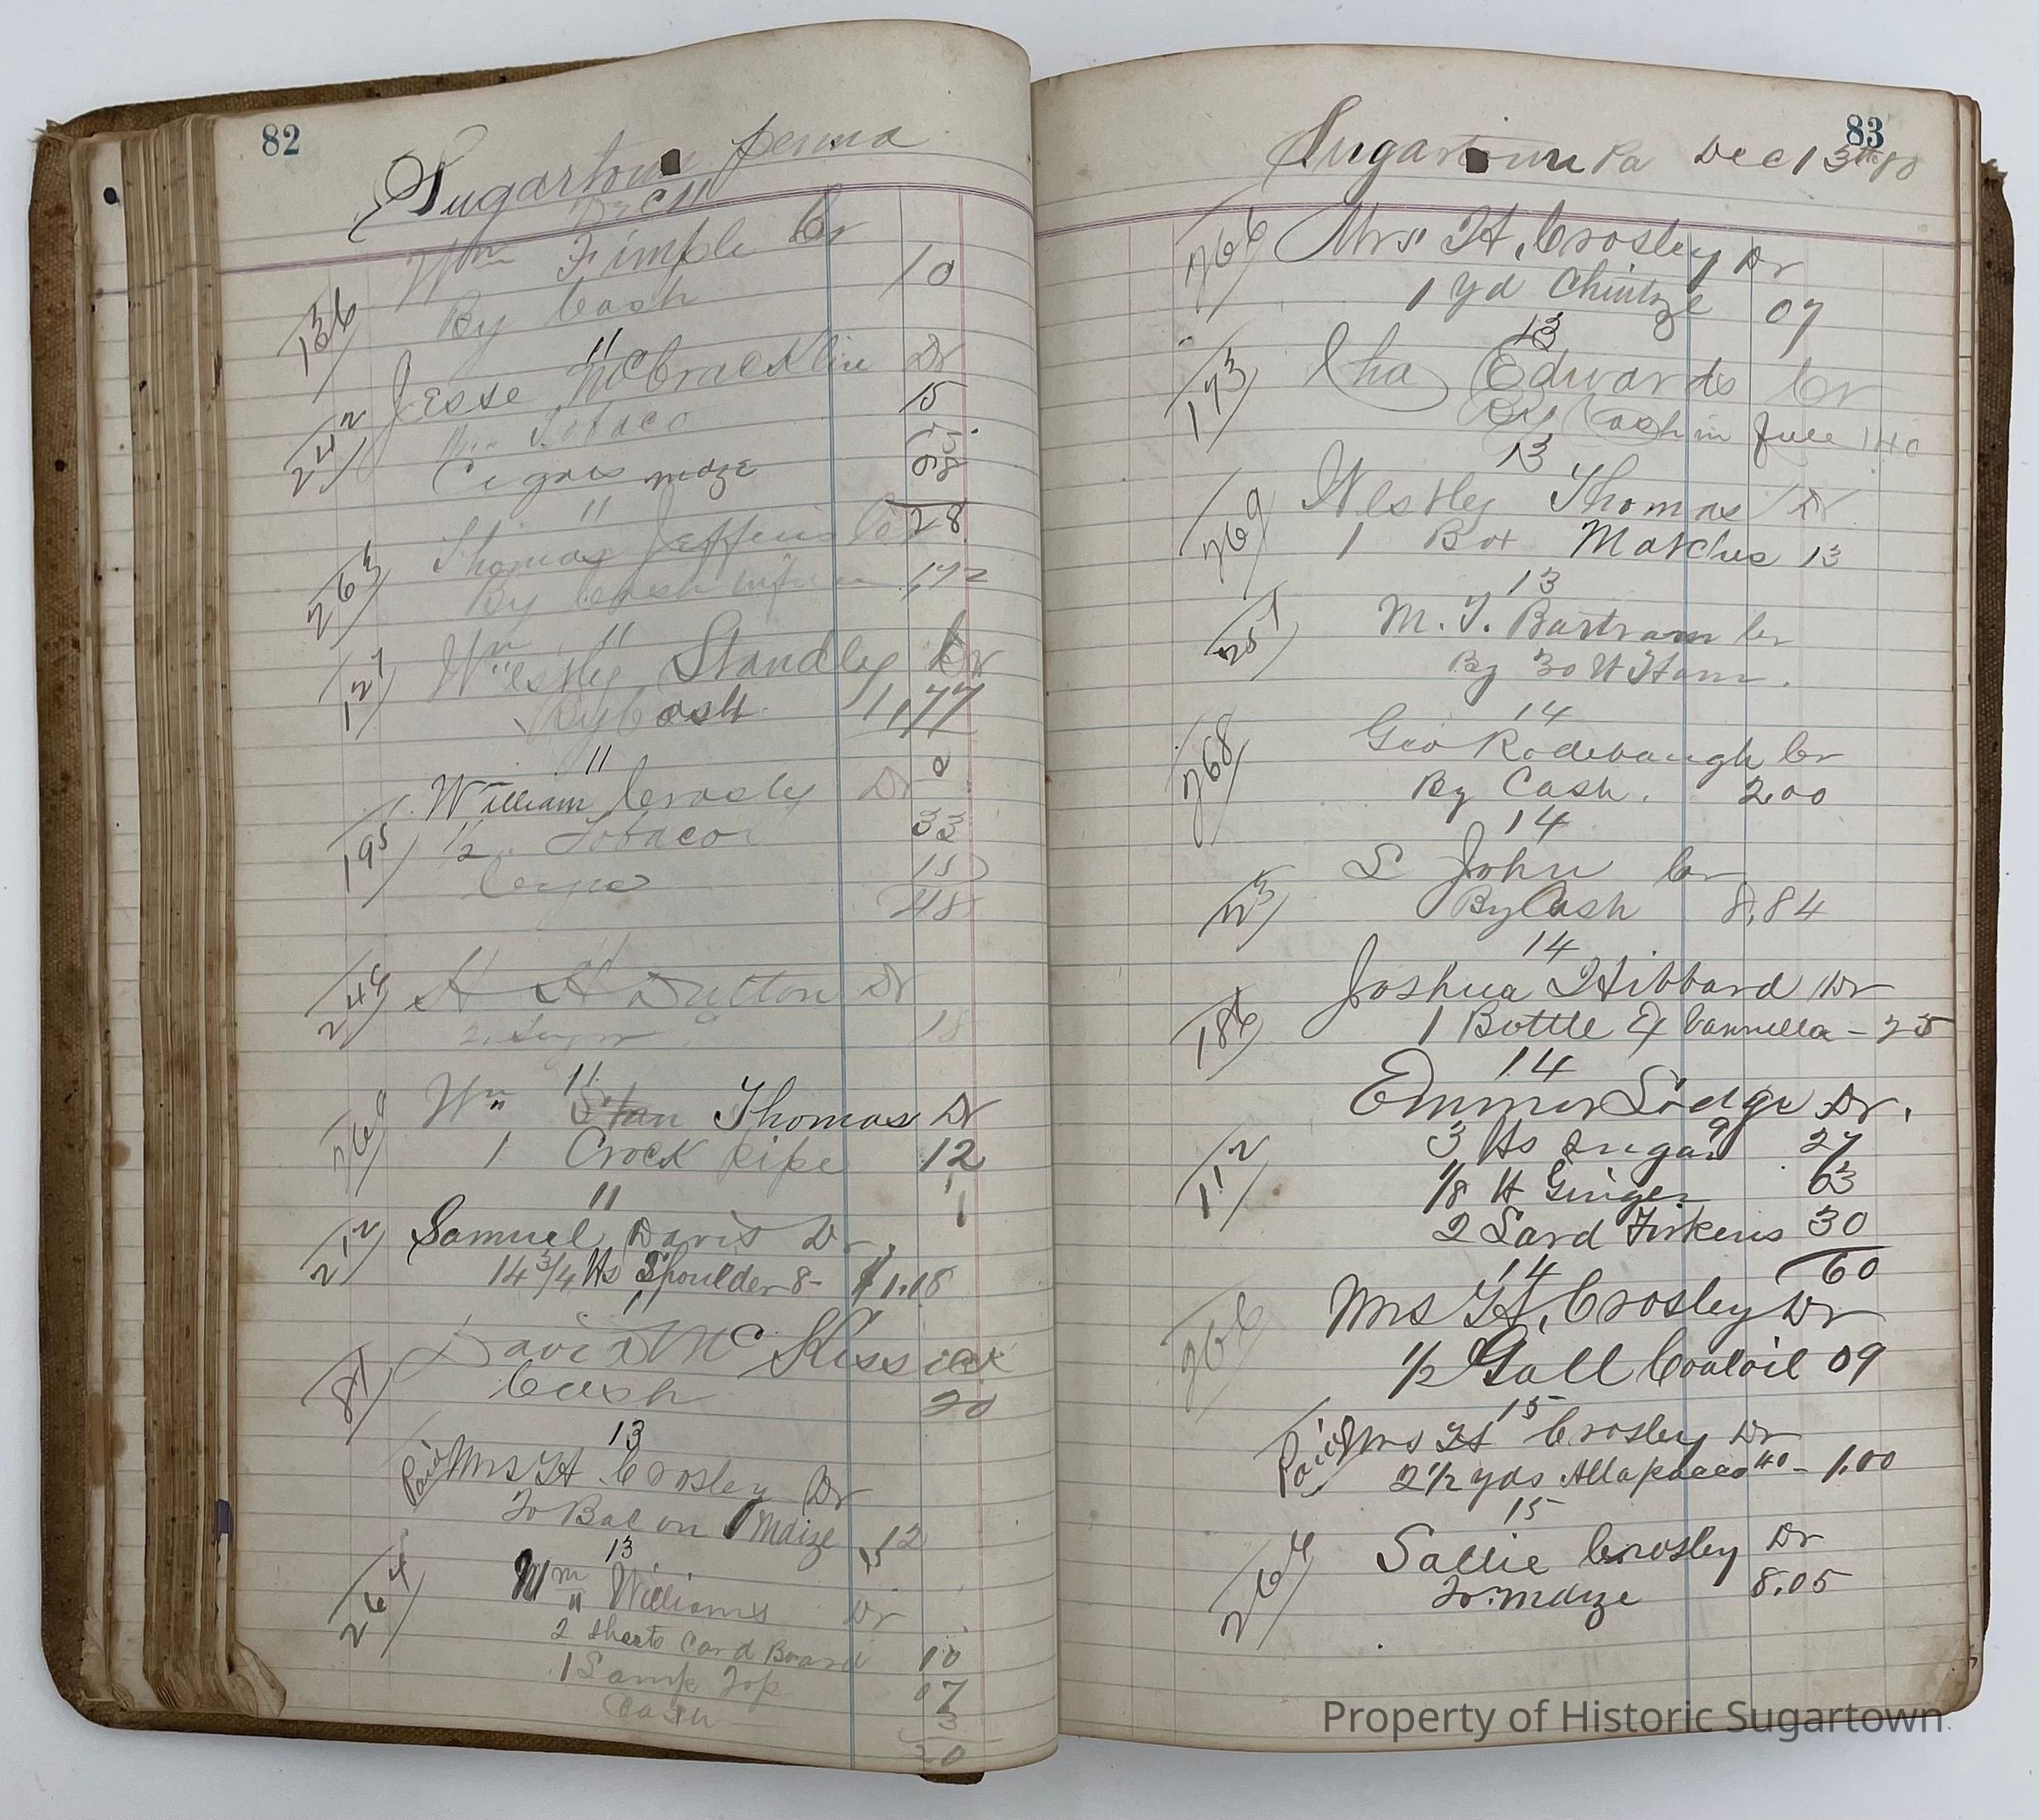 82
Sugartown penna
Dec 11
Wm Fimple Cr
136
By Cash 10
11
Jesse McCracklin Dr
242
Tobaco 15
Cigars maze
28
11
263
Thomas Jefferis Cr
By Cash 1,72
11
127
Wm Weslley Standley Dr
By Cash 1,77
11
William Crosley Dr
195
1/2 Tobacco 33
15
48
11
249
H H Dutton Dr
2 Sugar 18
11
269
Wm Thomas Dr
1 Crock pipe 12
11
212
Samuel Davis Dr
14 3/4 lbs Shoulder 8- $1.18
11
David McKissick
87
Cash 20
13
Paid Mrs H. Crosley Dr
To Bal on Maize ,12
13
264
Wm Williams Dr
2 Sheets Card Board 10
1 Lamp Top 07
Cash 3
20
83
Sugartown Pa Dec 13th 80
266
Mrs H. Crosley Dr
1 yd Chintze 07
13
173
Cha Edwards Cr
By Cash in full 140
13
269
Weslley Thomas Dr
1 Box Matches 13
13
257
M. T. Bartram Cr
By 30 lb Ham.
14
268
Geo Rodebaugh Cr
By Cash. 2.00
14
S John Cr
23
By Cash 8,84
14
Joshua Hibbard Dr
186
1 Bottle Ex Vannella - 25
14
Emmor Lodge Dr.
112
3 lbs Sugar 9 27
1/8 lb Ginger 03
2 Lard Firkens 30
60
14
266
Mrs H. Crosley Dr
1/2 Gall Coaloil 09
15
Paid Mrs H Crosley Dr
2 1/2 yds Allapacca 40 - 1.00
15
264
Sallie Crosley Dr
To Maize 8.05
Property of Historic Sugartown